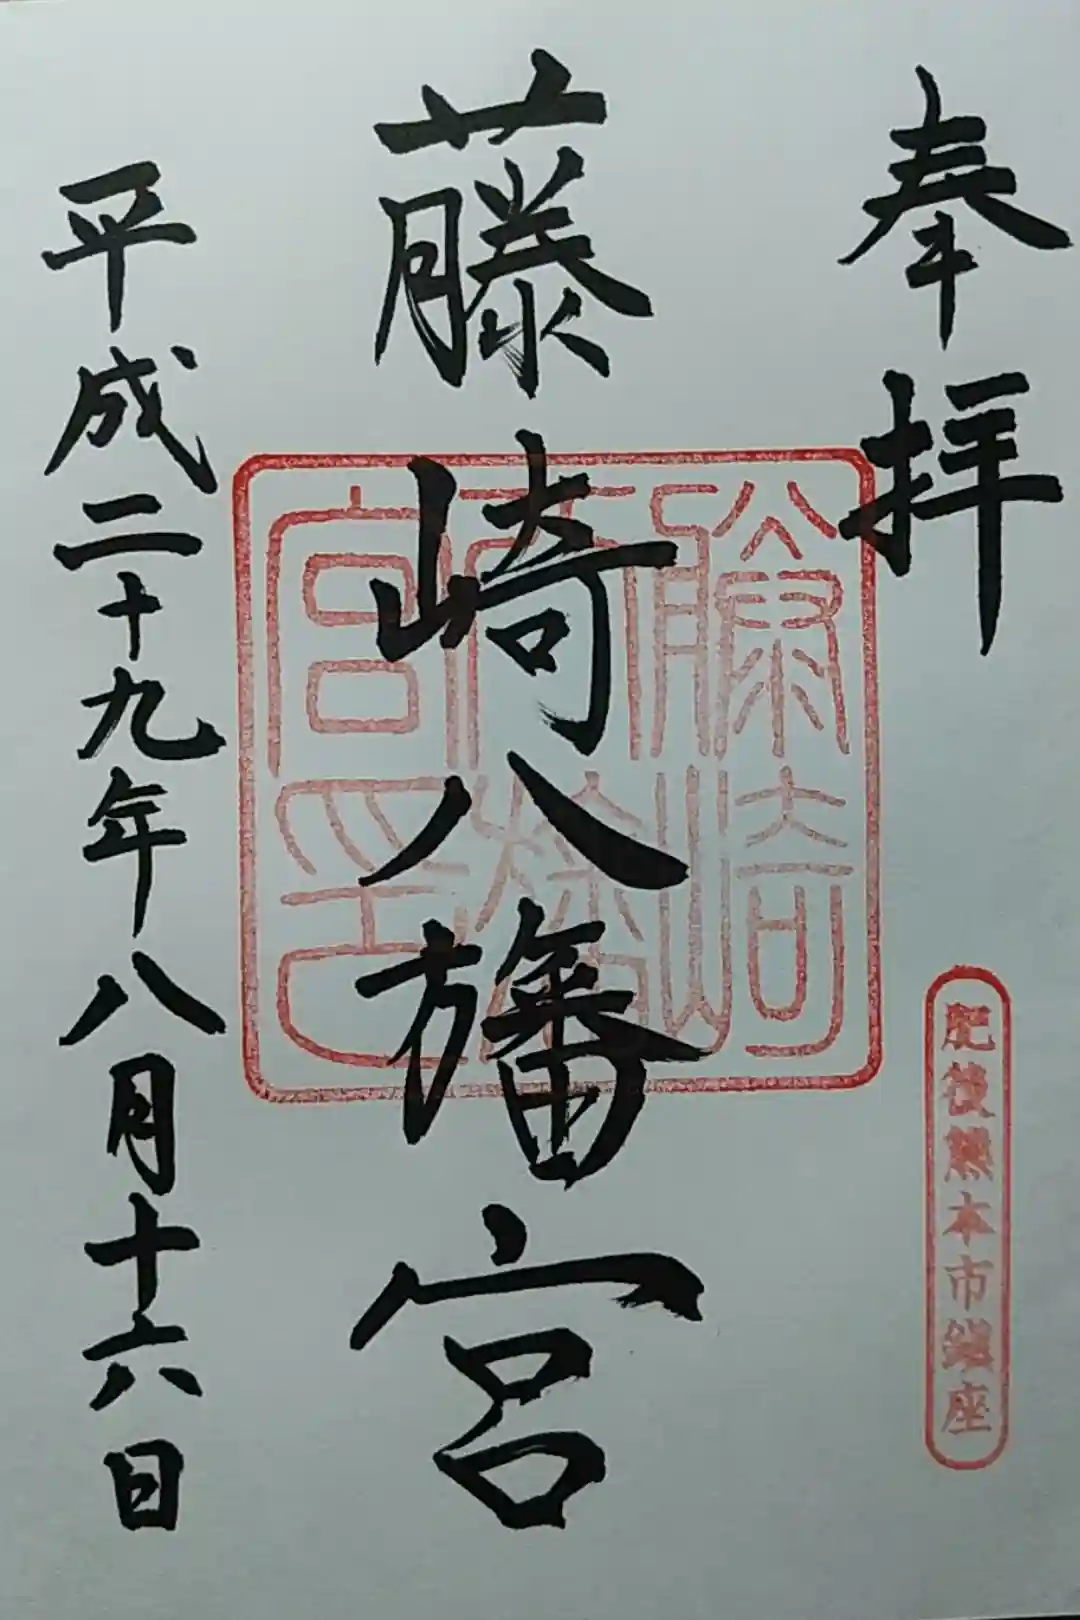 奉拝
肥後熊本市鎮座
藤崎八旛宮
藤崎八旛宮印
平成二十九年八月十六日